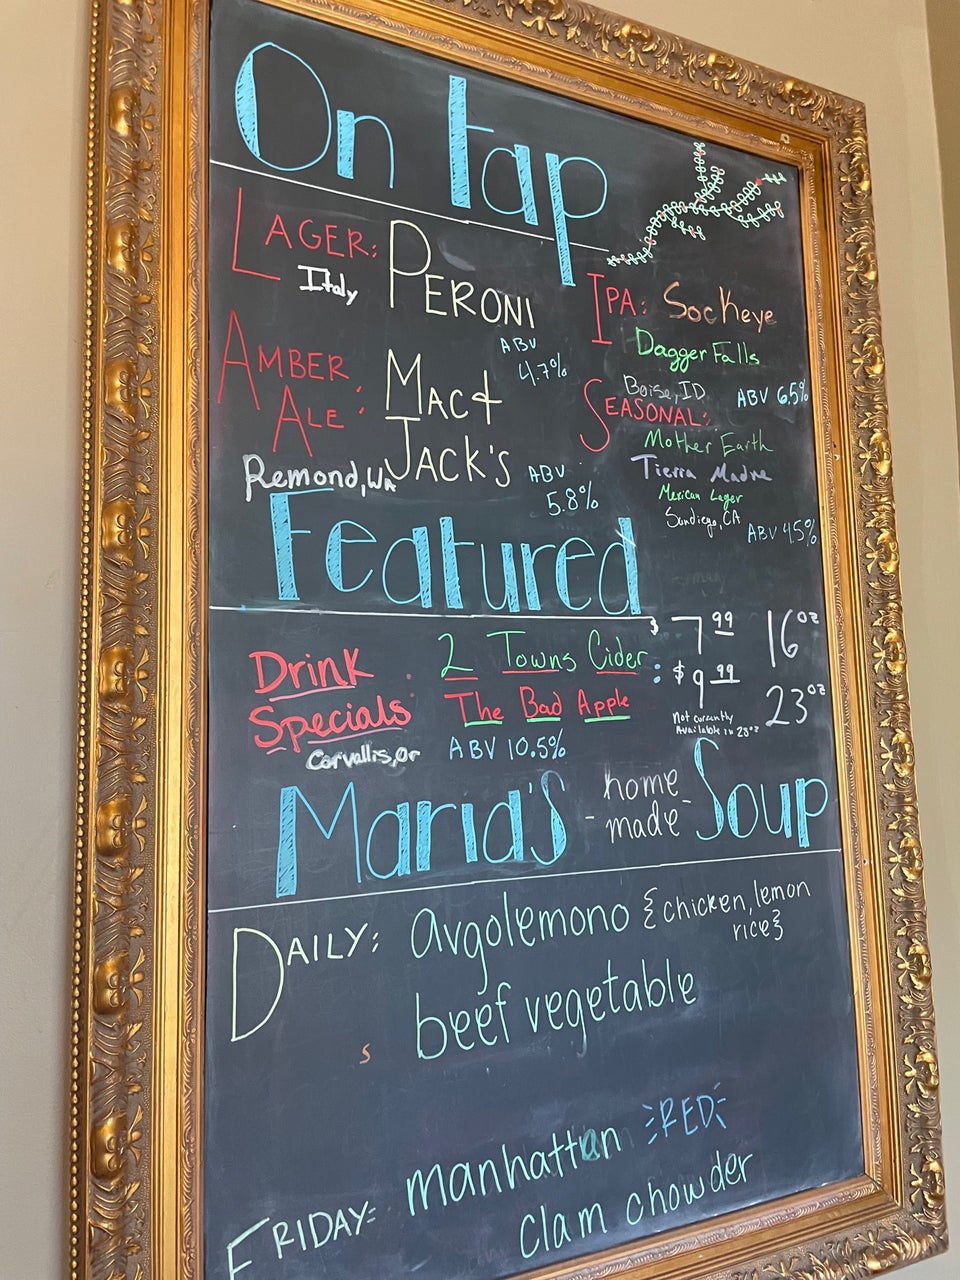 On tap
LAGER: PERONI
Italy
ABV
4.7%
AMBER ALE: MAC & JACK'S
Remond, WA
ABV
5.8%
IPA: Sockeye
Dagger Falls
Boise, ID ABV 6.5%
SEASONAL:
Mother Earth
Tierra Madre
Mexican Lager
Sandiego, CA
ABV 4.5%
Featured
Drink Specials:
Corvallis, Or
2 Towns Cider:
The Bad Apple
ABV 10.5%
$7.99 16oz
$9.99 23oz
Not currently
Available in 23oz
Maria's - home made - Soup
DAILY: avgolemono {chicken, lemon
rice}
beef vegetable
s
FRIDAY: manhattan RED
clam chowder